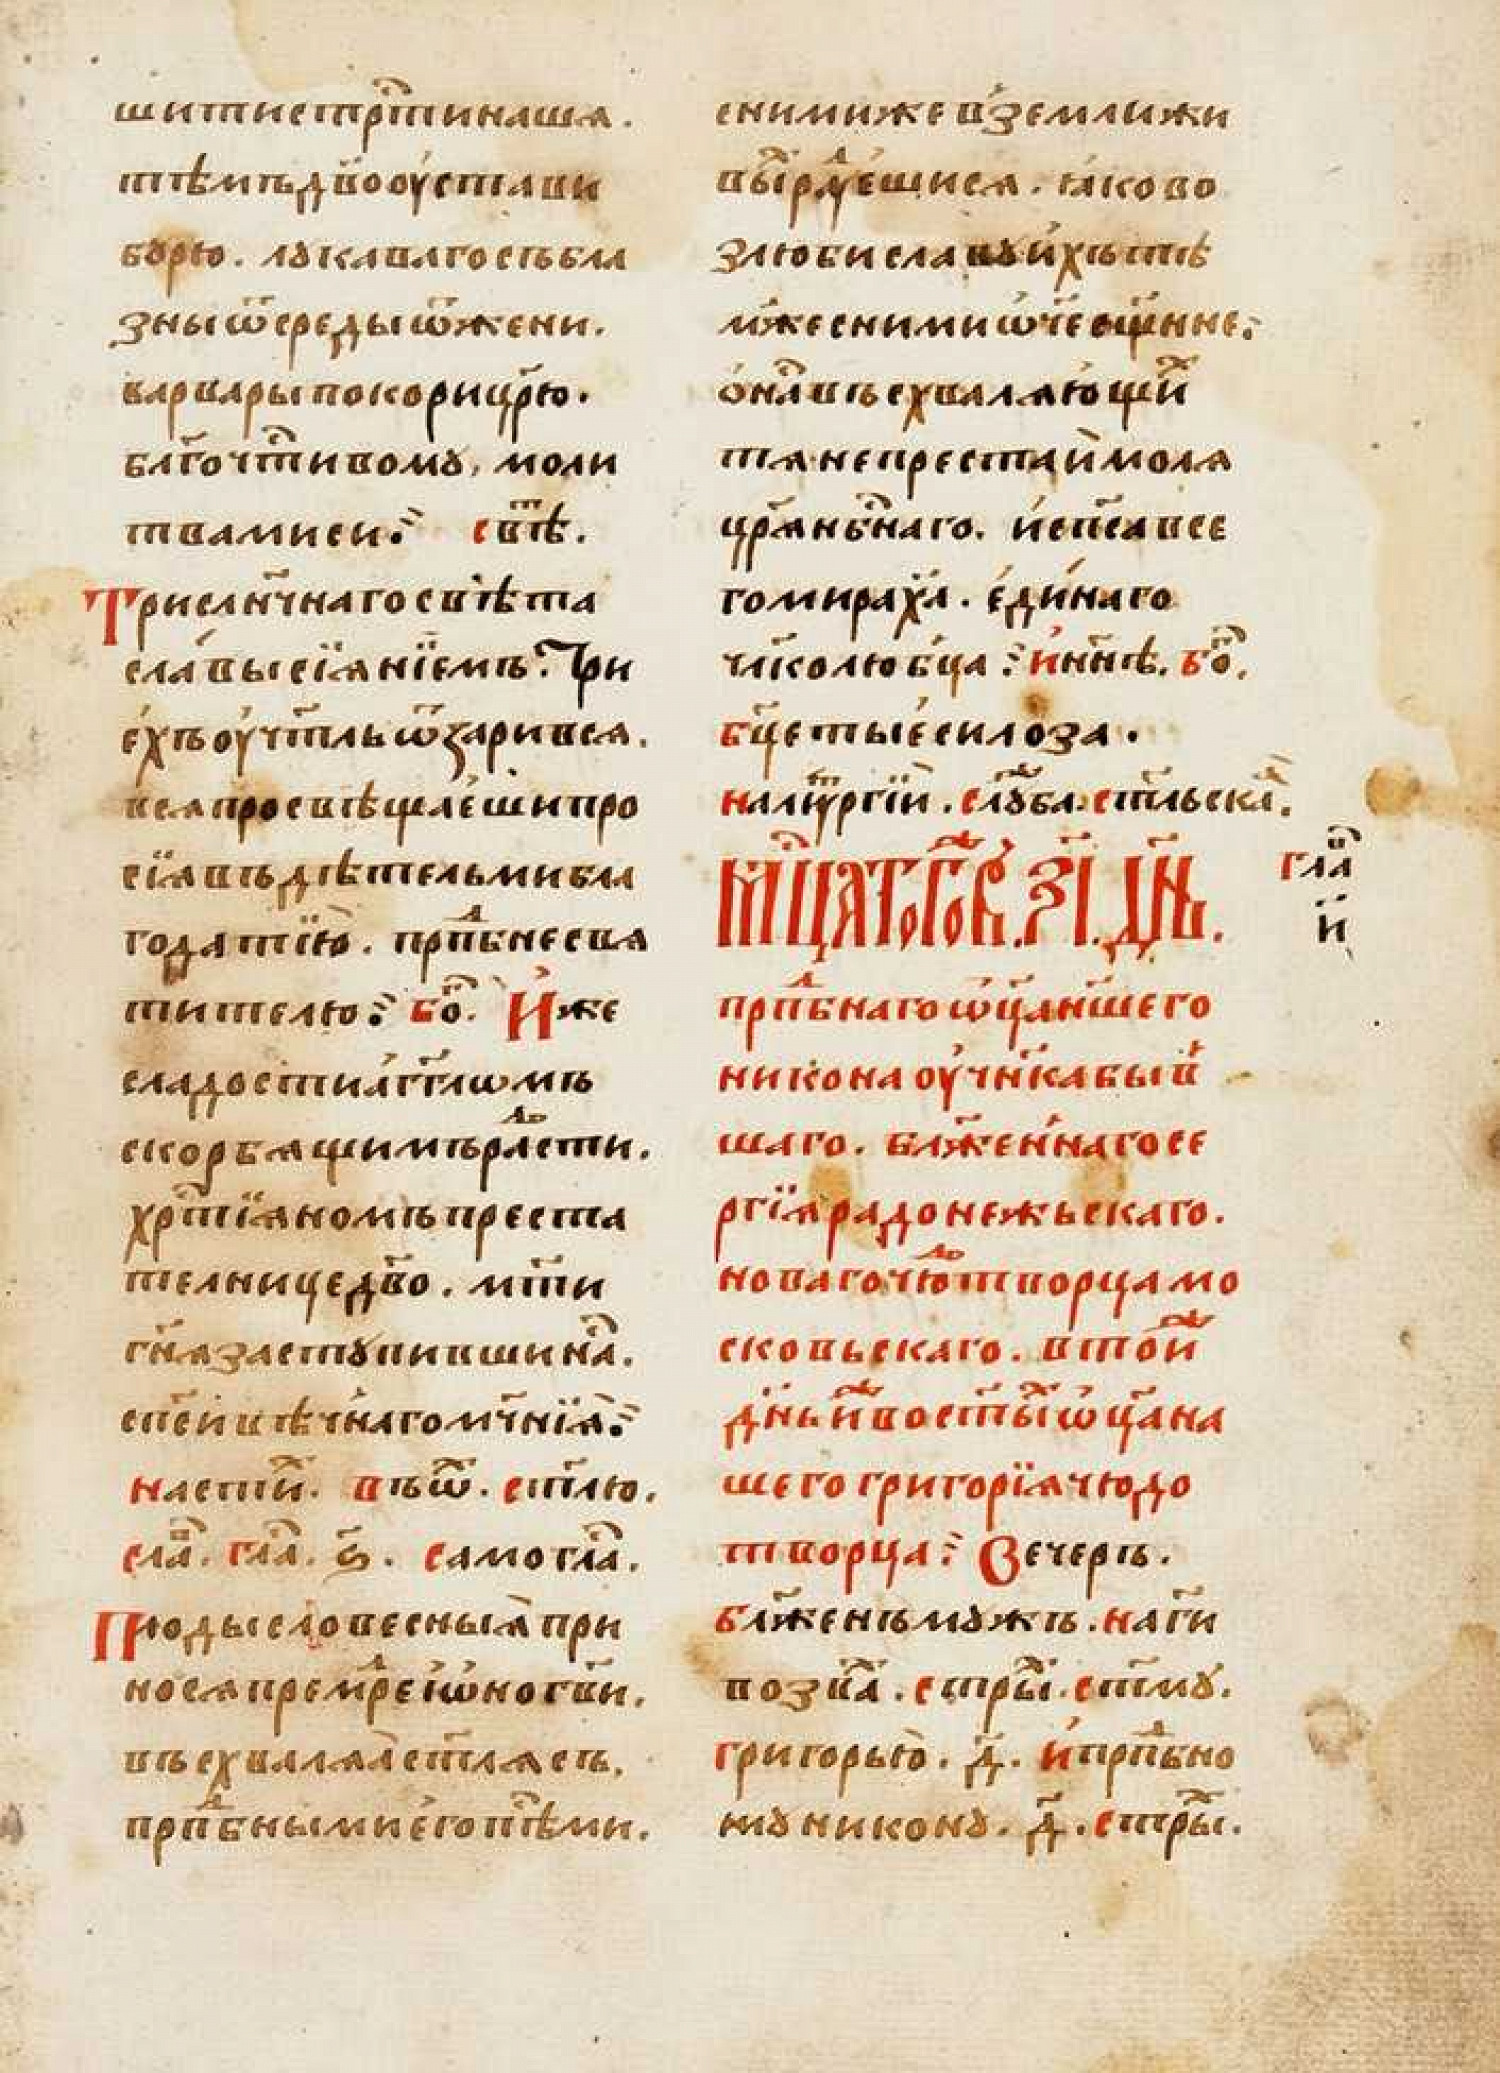 шитистр҇тинаша.
тѣмъдв҃ооуѓстави
бꙋрю. лꙋкавагосъбла
зныѿсредыѿжени.
варварыпокорицр҃ю.
блг҃оч҇тивомꙋ, моли
твамиси҃: свѣ҇т.
Трисл҃нчнагосвѣта
славысїѧнїемъ. Три
е́хъоучт҃льѿзаривсѧ.
всѧпросвѣщае́шипро
сїѧвъдѣтельмибла
годатїю. прпⷣбнесвѧ
тителю: бо҇. И҆же
сладостиа҆гг҃лѡмъ
скорбѧщимъраⷣсти.
хр҇тїѧномъпреста
телницедв҃о. мт҃и
гн҃ѧзаступившина҇.
сп҃сиѝвѣчнагомч҃нїѧ:
насти҇х. въѿ. ст҃лю.
сла҇в. гла҇. ѕ҃. самогла҇.
Плодысловесныѧпри
носѧпремⷣреіѡ҆ногв҃и.
въсхвалѧа҆ст҃лѧсъ.
прпⷣбнымие҆гопт҃ѣми.
снимижевъземлижи
вы҇ираⷣуе́шисѧ. ꙗковъ
злюбиславꙋи҆хътѣ
м҇жеснимиѡ҆ч҃есщ҃нне:
ѻ҆на҇въсхвалѧю́щи҇х
тѧнепрестаѝмолѧ
цр҃ѧнб҇наго. и҆сп҃савсе
гомирах҃а. е҆ди́наго
чл҃колюбца: и҆нн҃ѣ. бо҇.
бц҃етыѐсилоза.
налиⷮургїи. слу҇ба.ст҃льска.
мц҇атогов҇. з҃і. дн҃ь.
гла҇в
и҃
прпⷣбнагоѡц҃ан҃шего
никонаоучн҃кабыв
шаго. бл҃женнагосе
ргїѧрадонежьскаго.
новагочюⷣтворцамо
сковьскаго. втой
дн҃ьи҆вост҃ы҇хѡц҃ана
шегогригорїѧчюдо
творца: Вечеръ.
бл҃женъмꙋжъ.наги
возва҇х. стр҇ы.ст҃мꙋ.
григорью. д҃. и҆прпⷣбно
мꙋниконꙋ. д҃.стр҇ы.